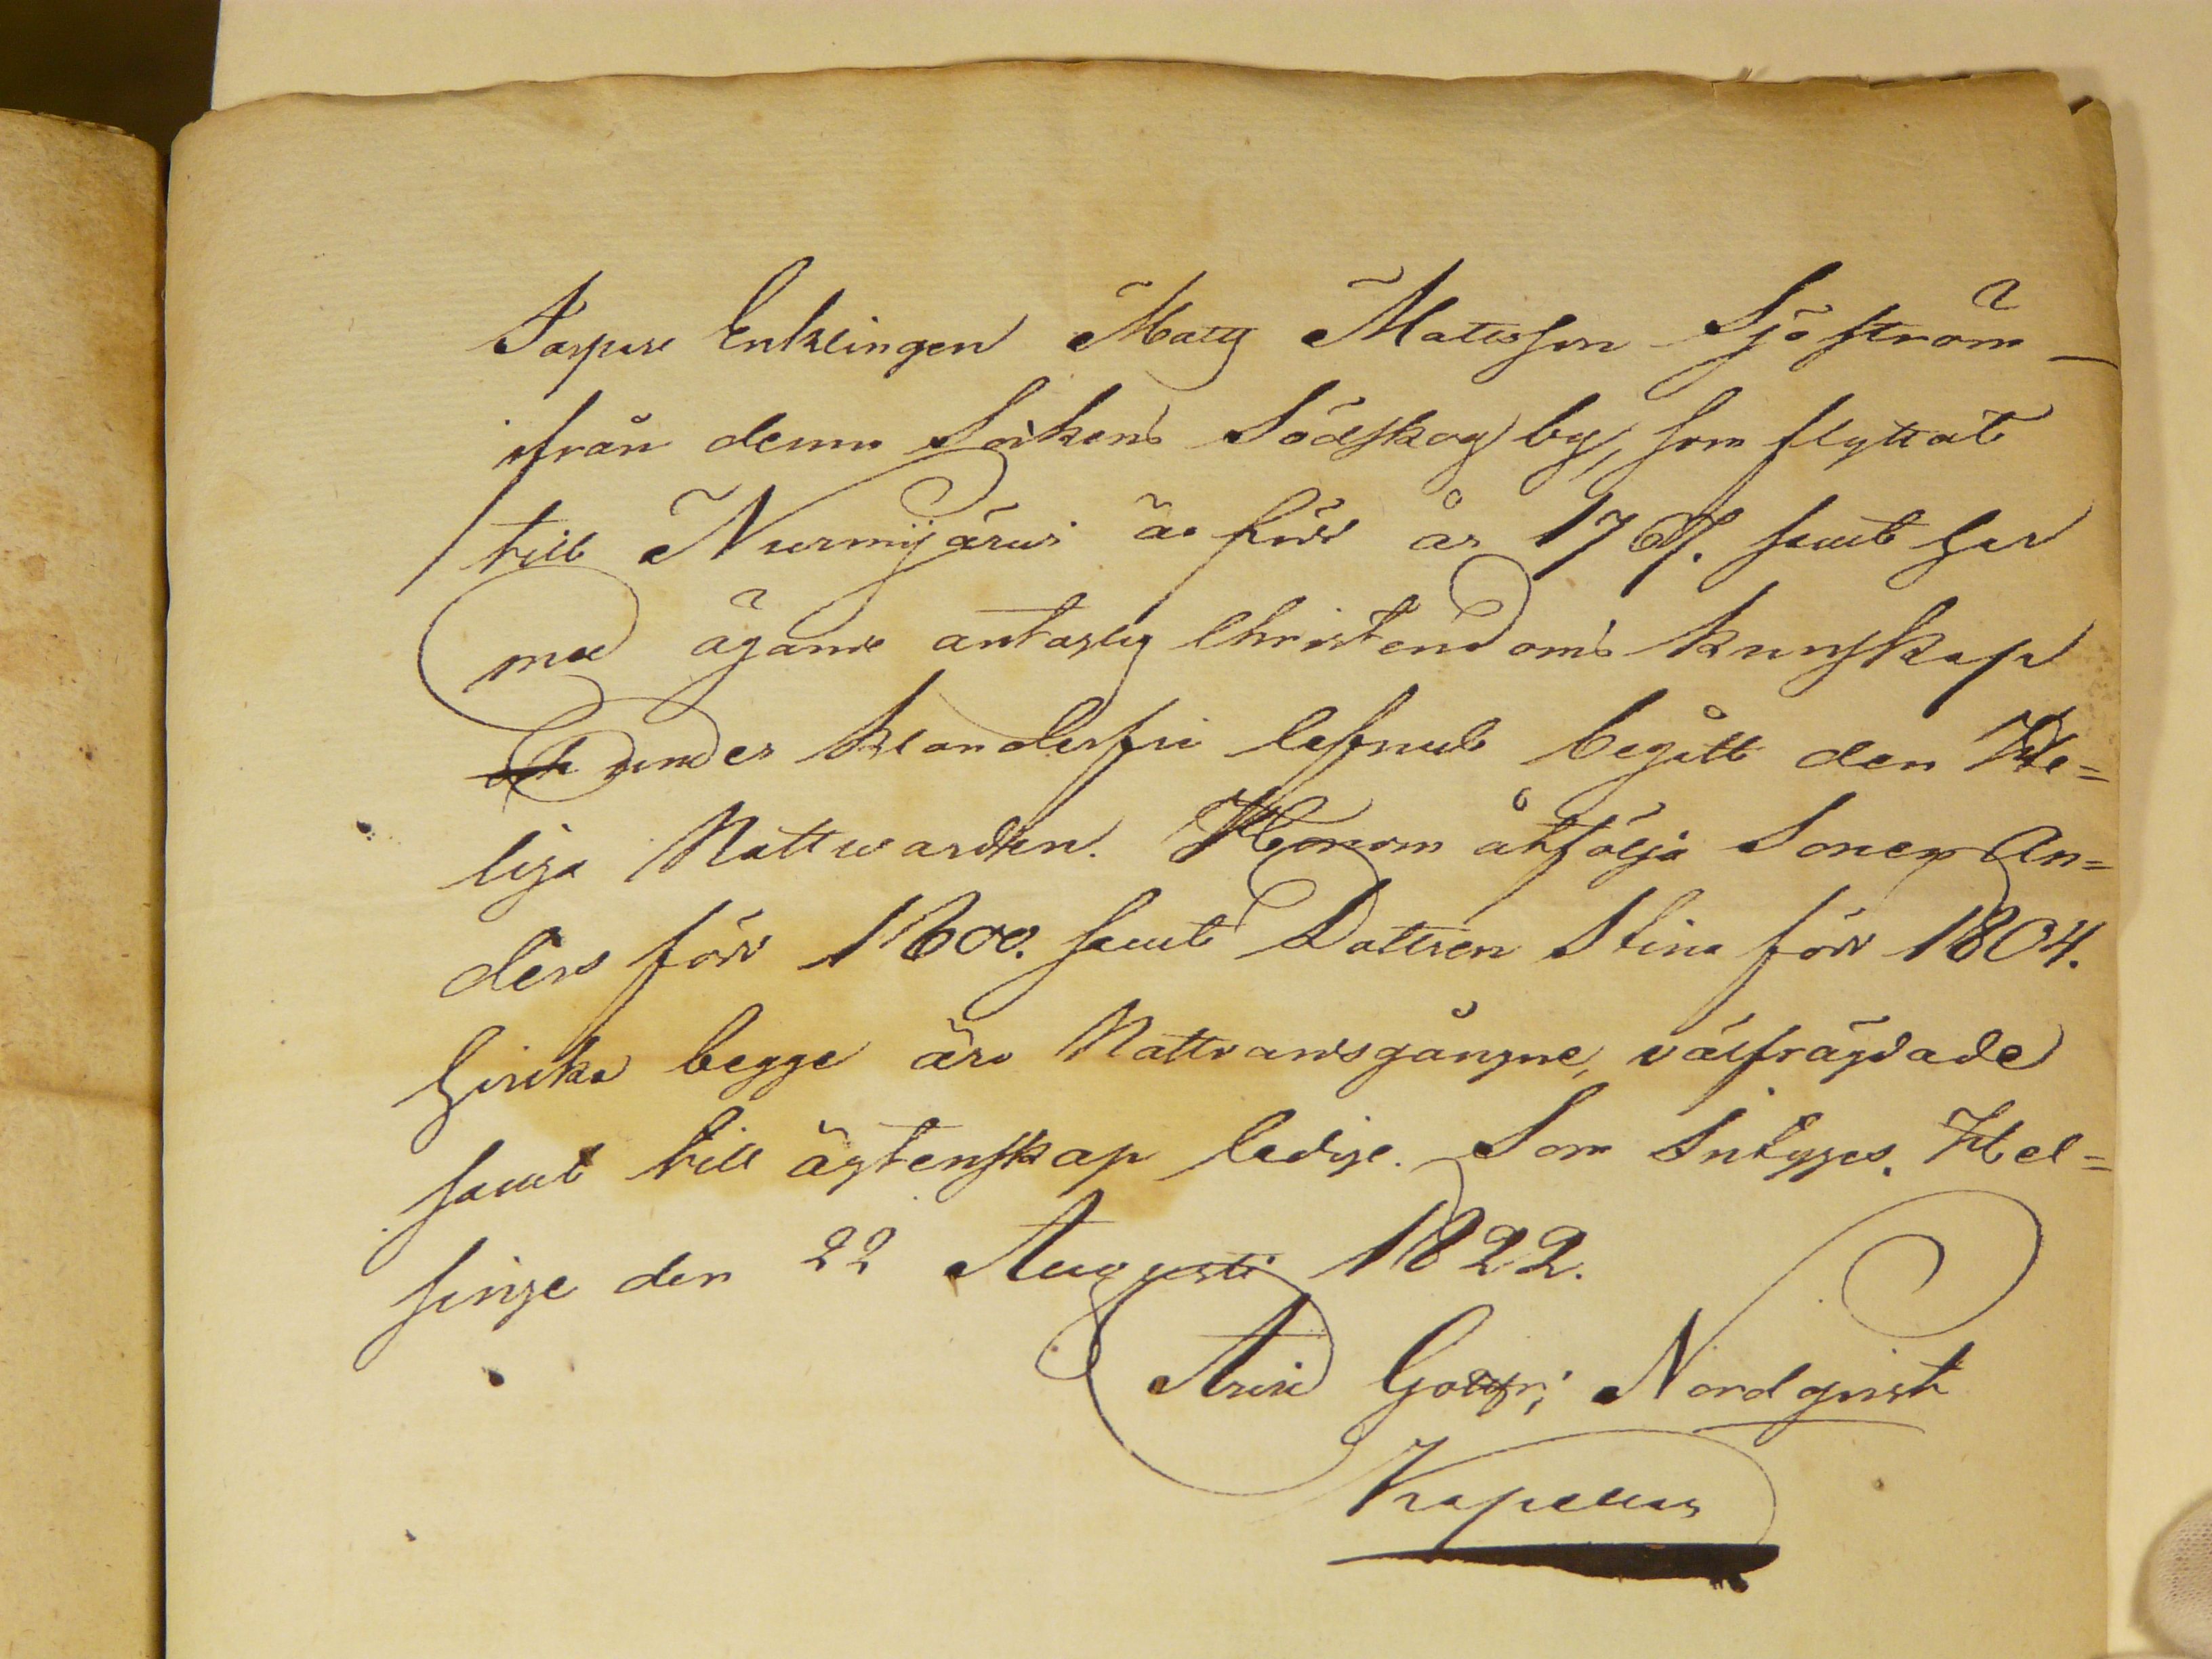 Torpare Enklingen Matts Matsson Sjöström
ifrån denne Sockens Södskog by, som flyttat
till Nurmijärvi är född år 1767. samt har
med ägande antaglig Christendoms kunskap
under klanderfri lefnad begått den He=
liga Nattwarden. Honom åtfölja Sonen An=
ders född 1800. samt Dottren Stina född 1804.
hvilka begge äro Nattvardsgångne, välfrägdade
samt till ägtenskap ledige. Som Intygas. Hel=
singe den 22 Augusti 1822.
Arvid Gottfr: Nordqvist
Kapellan